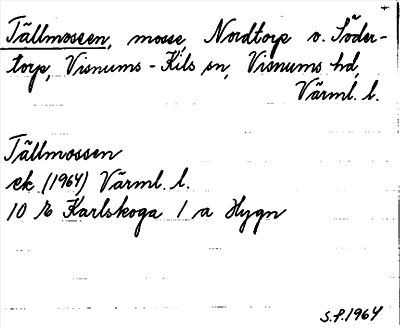 Tällmossen, mosse, Nordtorp o. Söder-
torp, Visnums-Kils sn, Visnums hd,
Värml. l.
Tällmossen
ek (1964) Värml. l.
10 E Karlskoga 1 a Hygn
S.P. 1964